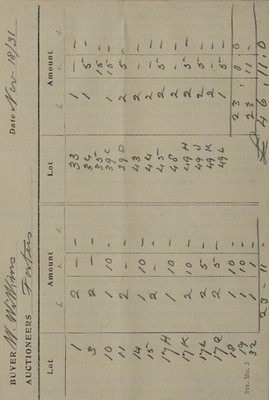 BUYER W. Wilkins Date Nov 18/31
AUCTIONEERS
Lot Amount Lot Amount
£ s. d. £ s. d.
1 2 - - 33 1 - -
3 2 - - 34 1 5 -
10 1 10 - 35 15 -
11 2 - - 39C 1 15 -
14 1 10 - 39D 2 5 -
15 2 - - 43 2 - -
17H 1 10 - 44 2 - -
17K 2 10 - 45 2 5 -
17L 2 5 - 46 2 - -
17Q 2 5 - 49H 2 5 -
18 1 10 - 49J 2 5 -
19 1 10 - 49K 2 - -
32 1 1 - 49L 1 5 -
23 - 11 - 23 . 0 . 0
23 11 -
£ 46 . 11 . 0